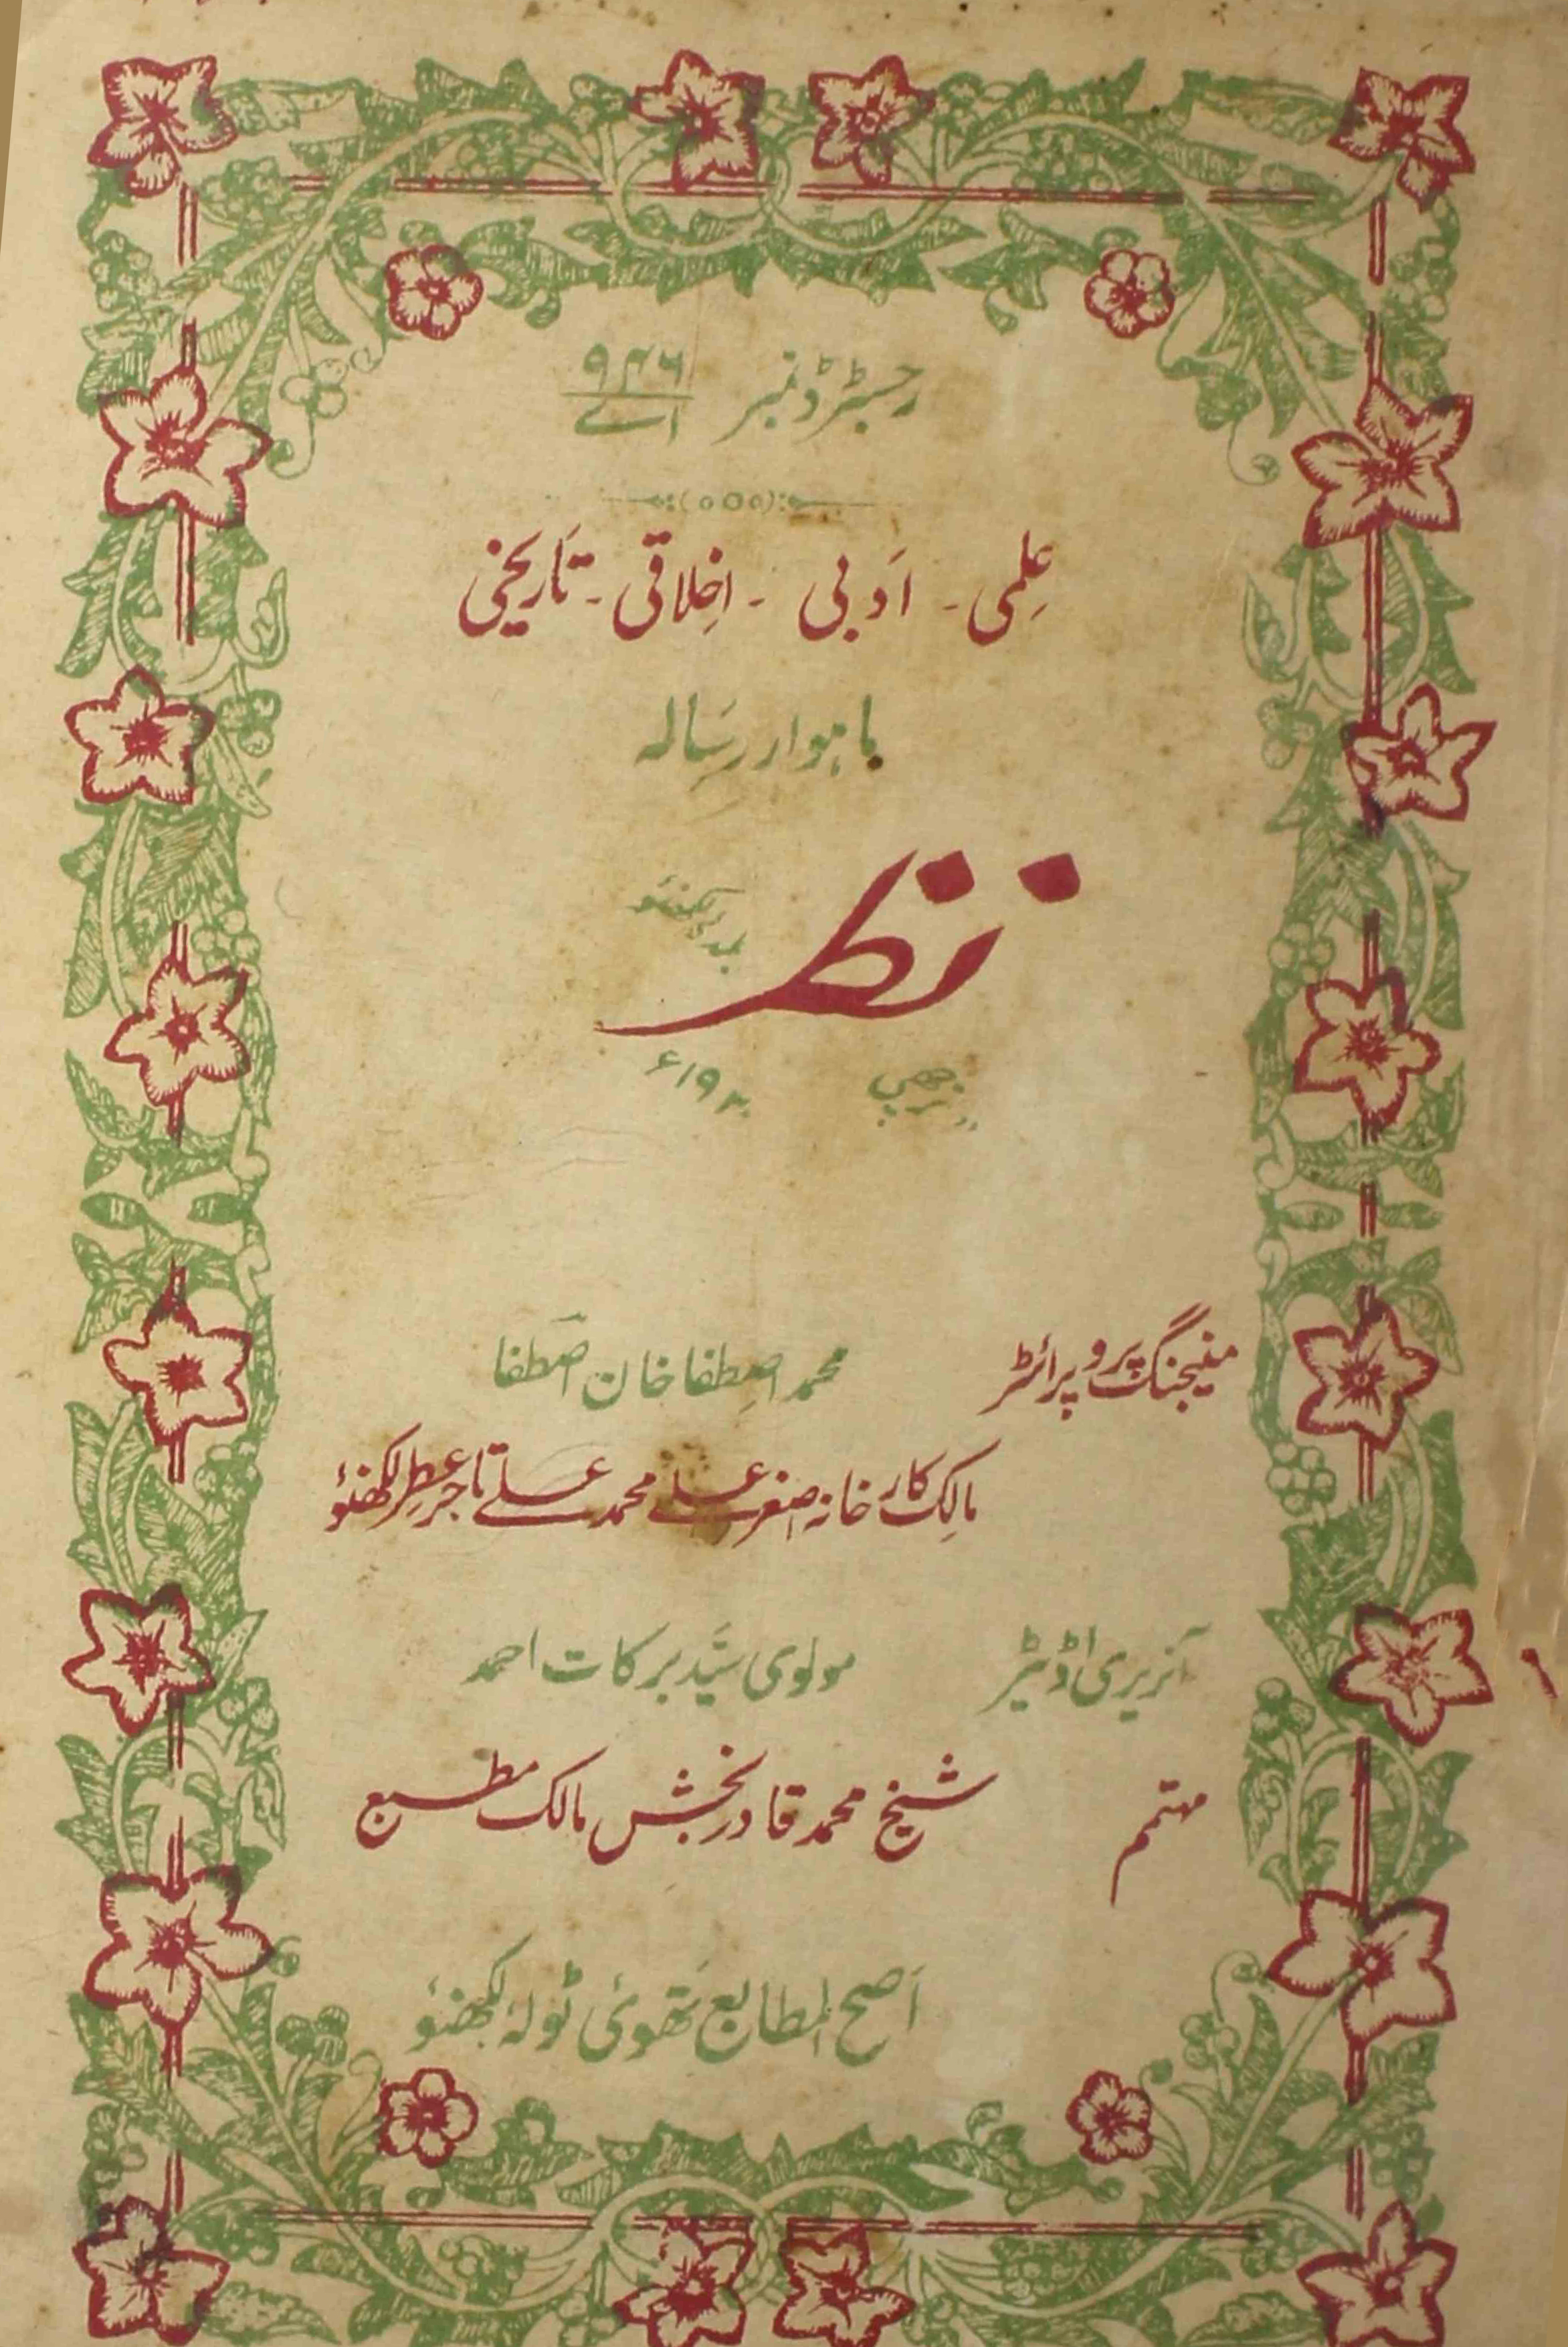 رجسٹرڈ نمبر ۹۴۶
اے
عِلمی - اَدبی - اخِلاقی - تاَریخی
ماہوار رِسَالہ
نظر
لکھنئو
۱۹۲ء
منیجنگ پروپرائٹر محمد اصِطفا خان اصَطفا
مالِک کار خانہ اصغر علے محمد علے تاجر عطِر لکھنؤ
آنریری اڈیٹر مولوی سَیّد برکات احمد
مہتمم شیخ محمد قادر بخش مالک مطبع
اَصح المطابع تھَوئی ٹولہ لکھنؤ